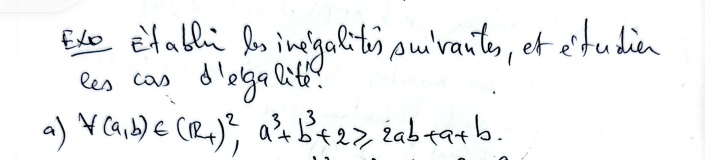 Exo Etablir les inégalités suivantes, et étudier
les cas d'égalité.
a) ∀(a,b) ∈ (ℝ₊)², a³+b³+2 ≥ 2ab+a+b.